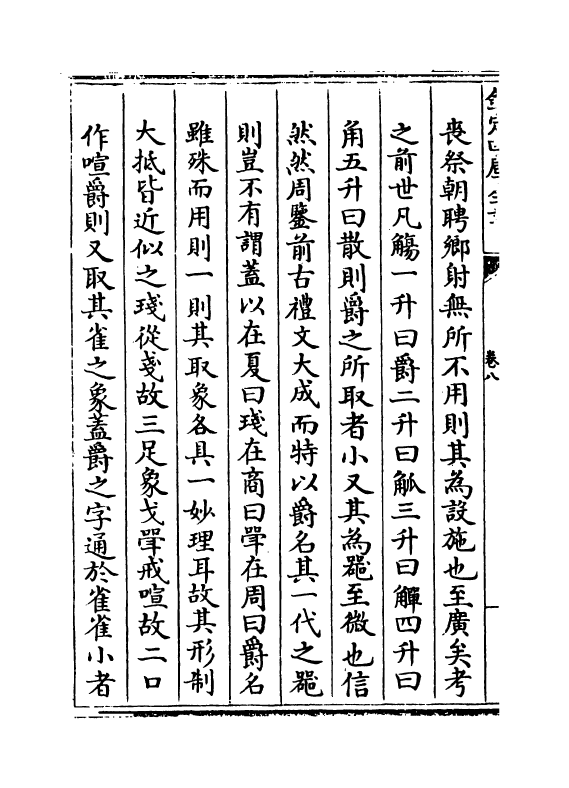 欽定四庫全書
卷八
喪祭朝聘鄉射無所不用則其為設施也至廣矣考
之前世凡觴一升曰爵二升曰觚三升曰觶四升曰
角五升曰散則爵之所取者小又其為器至微也信
然然周鑒前古禮文大成而特以爵名其一代之器
則豈不有謂蓋以在夏曰琖在商曰斝在周曰爵名
雖殊而用則一則其取象各具一妙理耳故其形制
大抵皆近似之琖從戔故三足象戈斝戒喧故二口
作喧爵則又取其雀之象蓋爵之字通於雀雀小者